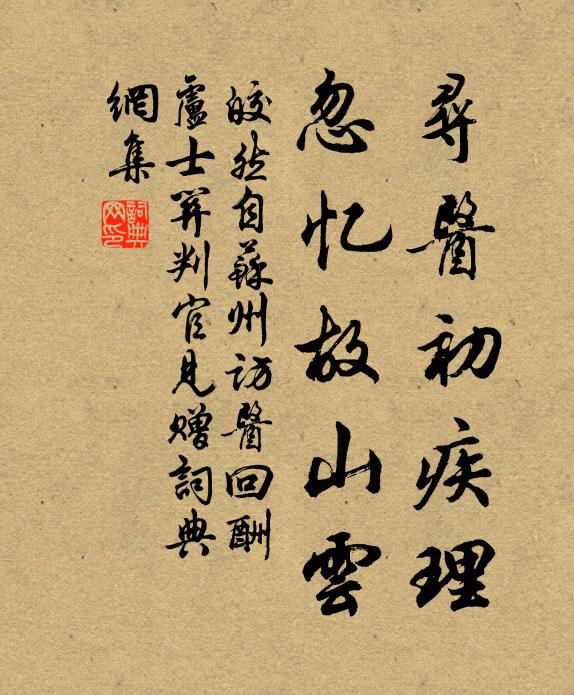 尋醫初疾理
忽忆故山雲
皎然自蘇州訪醫回酬
盧士關判官見贈詞典
網集
詞典
网印